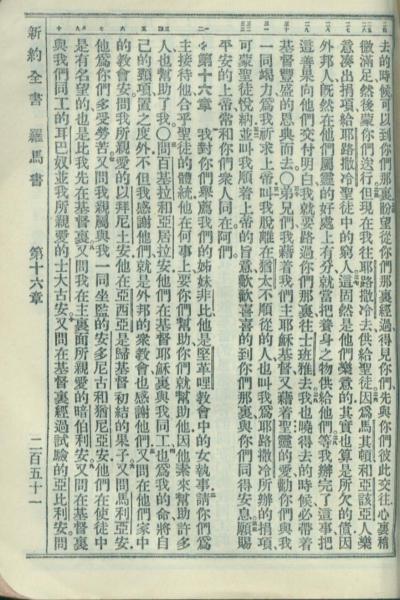 去的時候可以到你們那裏盼望從你們那裏經過得見你們先與你們彼此交往心裏稍
微滿足然後蒙你們送行但現在我往耶路撒冷去供給聖徒因爲馬其頓和亞該亞人樂
意凑出捐項給耶路撒冷聖徒中的窮人這固然是他們樂意的其實也算是所欠的債因
外邦人旣然在他們屬靈的好處上有分就當把養身之物供給他們等我辦完了這事把
這善果向他們交付明白我就要路過你們那裏往士班雅去我也曉得去的時候必帶着
基督豐盛的恩典而去〇弟兄們我藉着我們主耶穌基督又藉着聖靈的愛勸你們與我
一同竭力爲我祈求上帝叫我脫離在猶太不順從的人也叫我爲耶路撒冷所辦的捐項
可蒙聖徒悅納並叫我順着上帝的旨意歡歡喜喜的到你們那裏與你們同得安息願賜
平安的上帝常和你們衆人同在阿們
第十六章 我對你們舉薦我們的姊妹非比他是堅革哩教會中的女執事請你們爲
主接待他合乎聖徒的體統他在何事上要你們幫助你們就幫助他因他素來幫助許多
人也幫助了我〇問百基拉和亞居拉安他們在基督耶穌裏與我同工也爲我的命將自
己的頸項置之度外不但我感謝他們就是外邦的衆教會也感謝他們又問在他們家中
的教會安問我所親愛的以拜尼土安他在亞西亞是歸基督初結的果子又問馬利亞安
他爲你們多受勞苦又問我親屬與我一同坐監的安多尼古和猶尼亞安他們在使徒中
是有名望的也是比我先在基督裏又問我在主裏面所親愛的暗伯利安又問在基督裏
與我們同工的耳巴奴並我所親愛的士大古安又問在基督裏經過試驗的亞比利安問
新約全書 羅馬書 第十六章 二百五十一